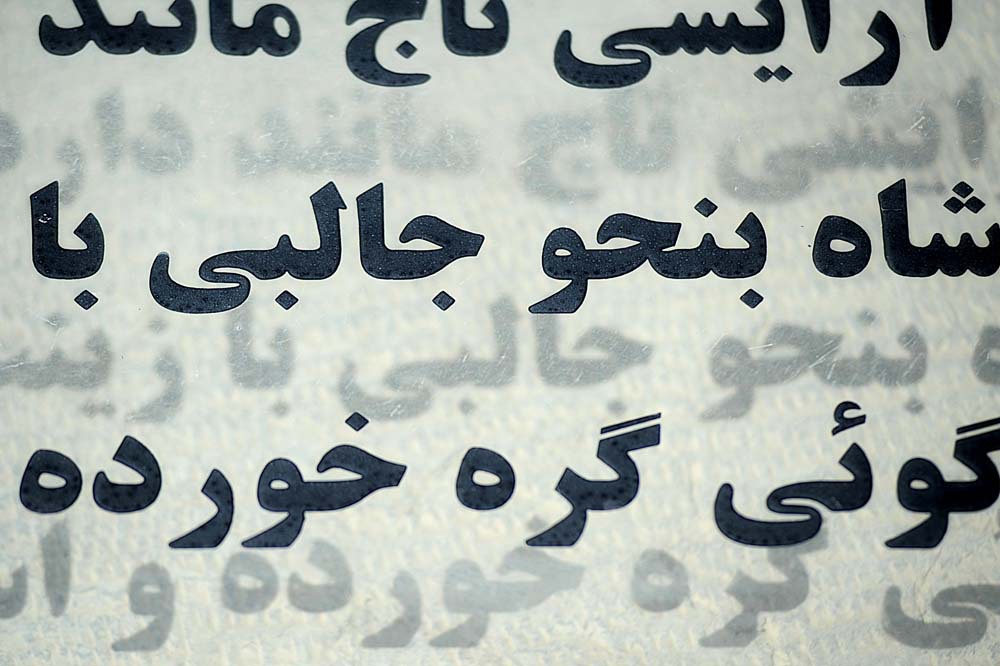 آرایسی تاج مانند
شاه بنحو جالبی با
گوئی گره خورده